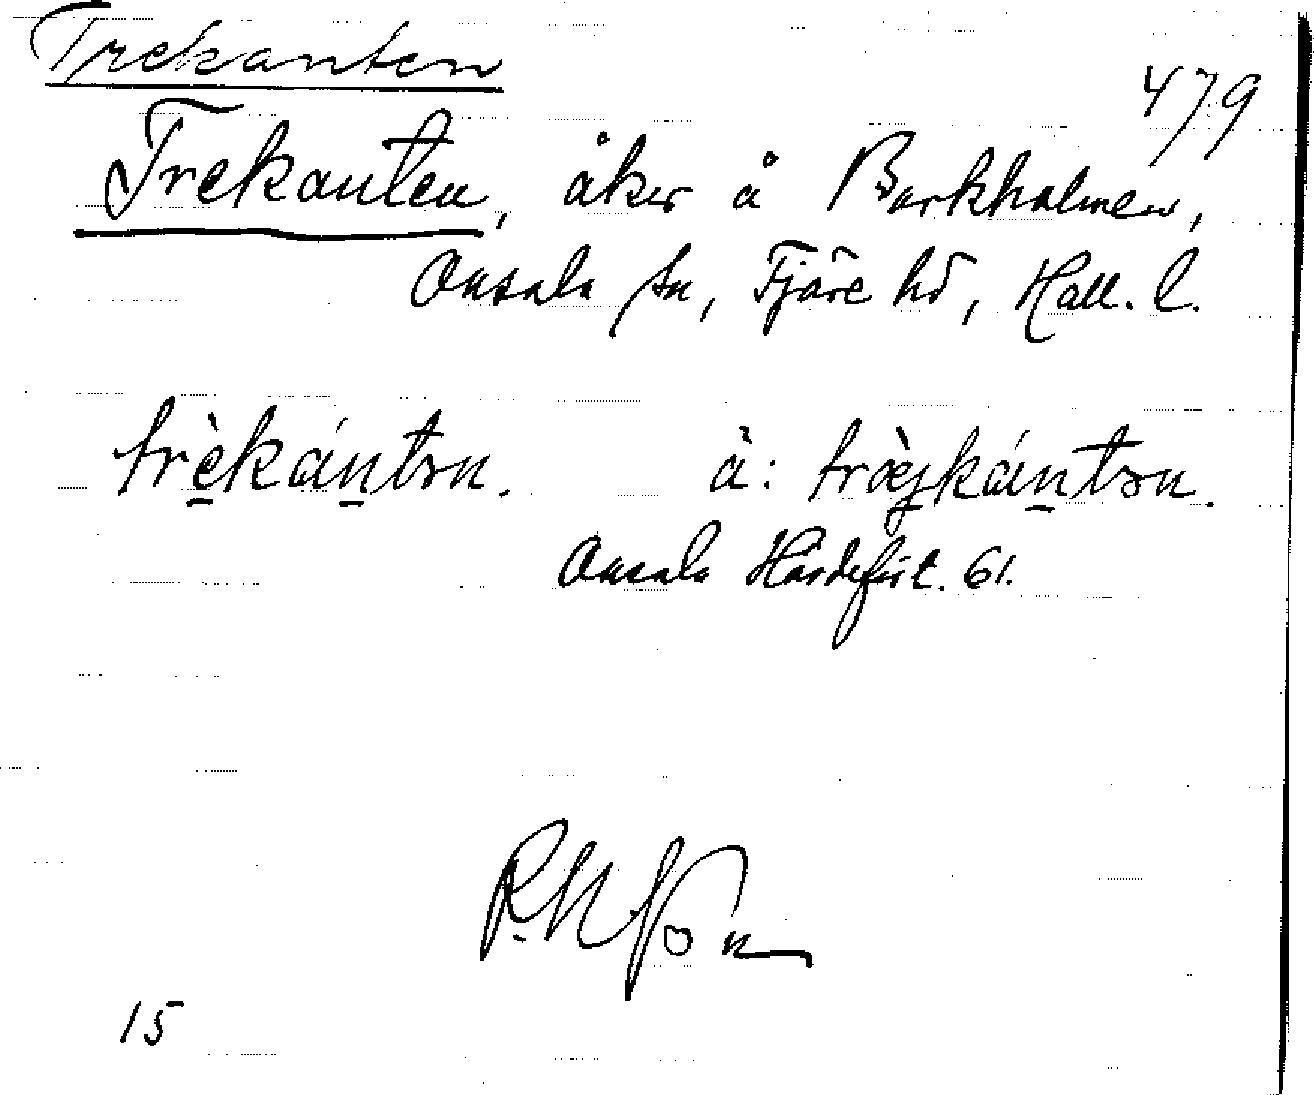 Trekanten
479
Trekanten, åker å Barkholmen,
Onsala sn, Fjäre hd, Hall. l.
trèkántən. ä: træ̀jkántən.
Onsala Hördefört. 61.
15